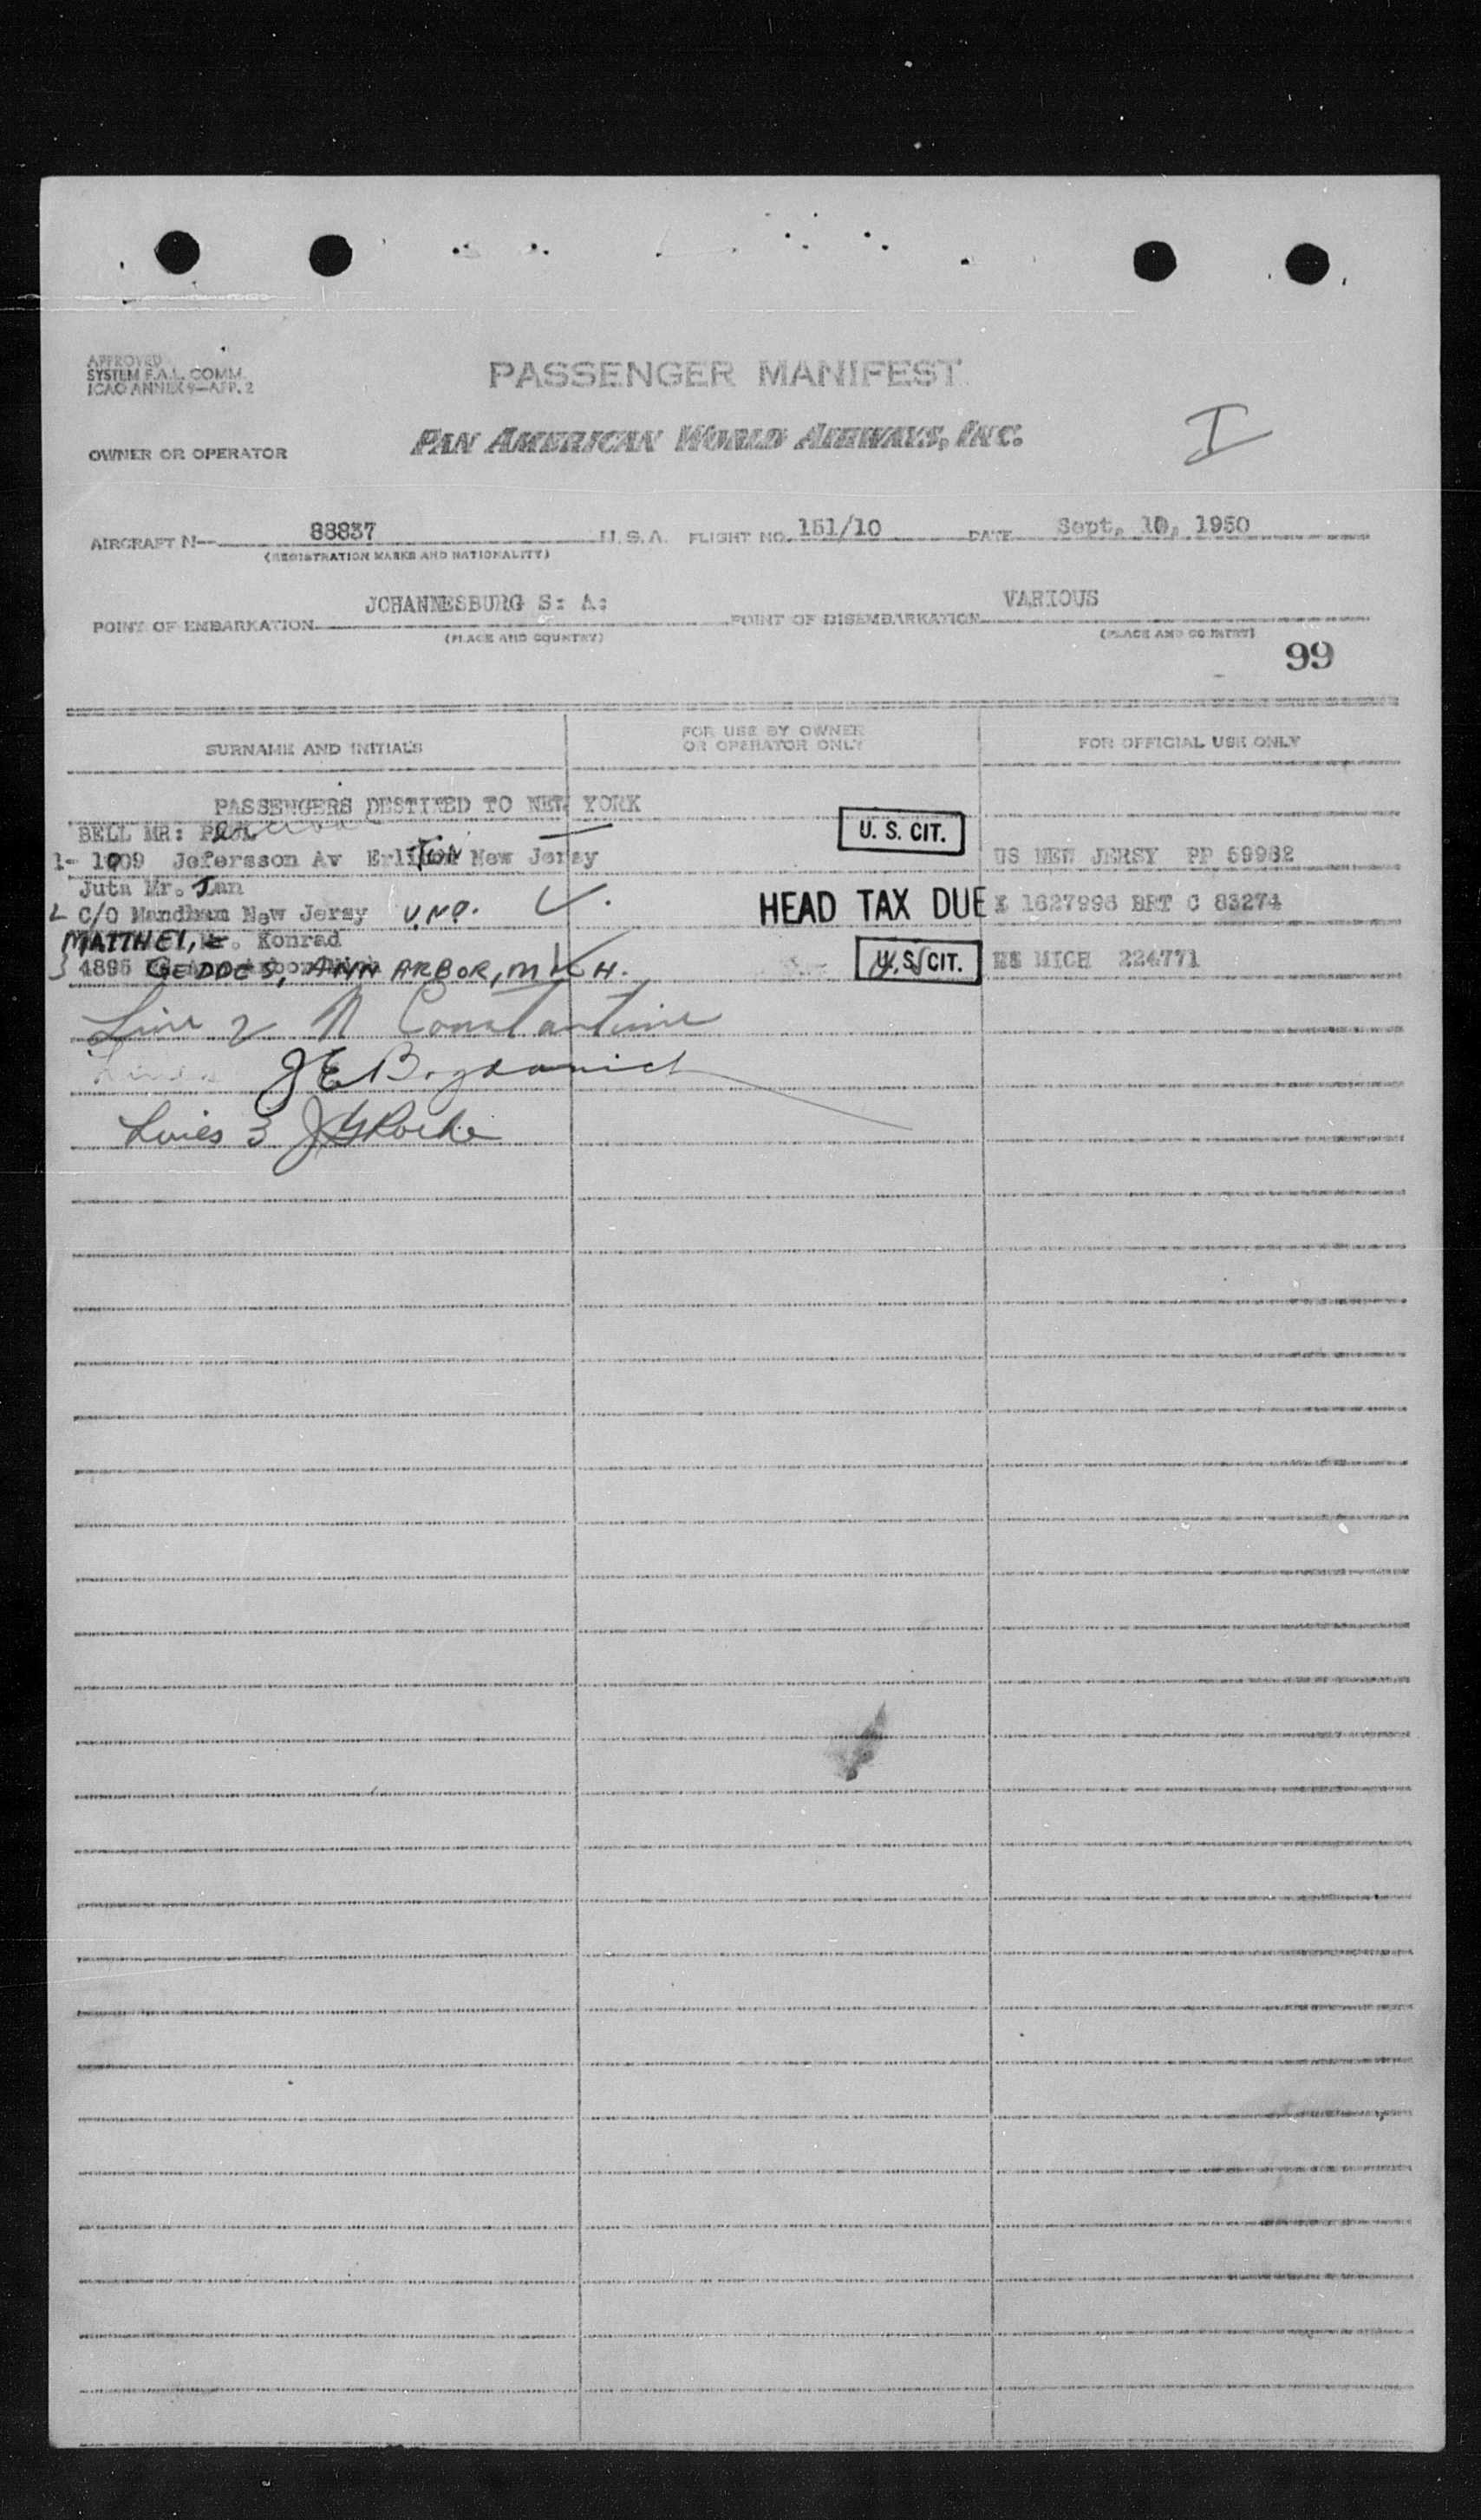 APPROVED
SYSTEM F.A.L. COMM.
ICAO ANNEX 9—APP. 2
PASSENGER MANIFEST
OWNER OR OPERATOR PAN AMERICAN WORLD AIRWAYS, INC. I
AIRCRAFT N— 88837 U.S.A. FLIGHT NO. 151/10 DATE Sept, 10, 1950
(REGISTRATION MARKS AND NATIONALITY)
POINT OF EMBARKATION JOHANNESBURG S: A: POINT OF DISEMBARKATION VARIOUS
(PLACE AND COUNTRY) (PLACE AND COUNTRY)
99
SURNAME AND INITIALS FOR USE BY OWNER OR OPERATOR ONLY FOR OFFICIAL USE ONLY
PASSENGERS DESTINED TO NEW YORK
BELL MR: U. S. CIT.
1- 1009 Jefersson Av Erlton New Jersy US NEW JERSY PP 59982
Juta Mr. Jan
2 C/O Mandham New Jersy U.NP. HEAD TAX DUE X 1627996 BRT C 83274
MATTHEI, Konrad
3 4895 GEDDES, ANN ARBOR, MICH. U.S. CIT. US MICH 224771
Line 2 N Constantine
J E Bogdanich
Lines 3 J G Roche